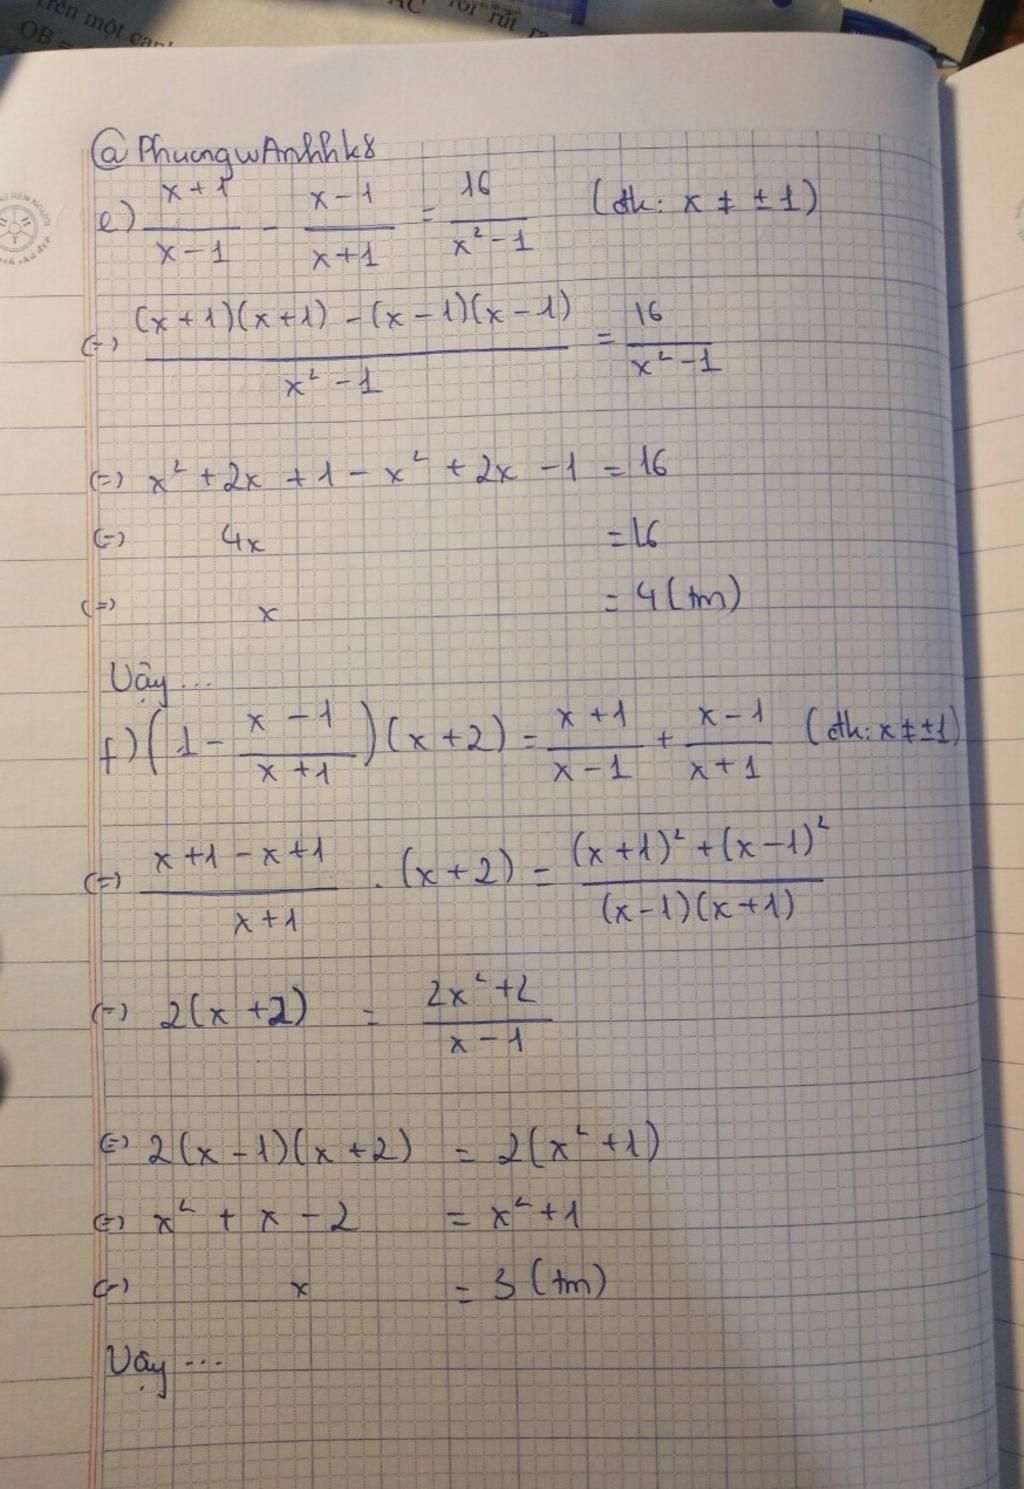 Trên một cạnh
OB =
AC
rồi rút ra
@PhuongwAnhhk8
e) \frac{x+1}{x-1} - \frac{x-1}{x+1} = \frac{16}{x²-1} (đk: x ≠ ±1)
(=) \frac{(x+1)(x+1) - (x-1)(x-1)}{x²-1} = \frac{16}{x²-1}
(=) x² + 2x + 1 - x² + 2x - 1 = 16
(=) 4x = 16
(=) x = 4 (tm)
Vậy ...
f) (1 - \frac{x-1}{x+1})(x+2) = \frac{x+1}{x-1} + \frac{x-1}{x+1} (đk: x ≠ ±1)
(=) \frac{x+1-x+1}{x+1} . (x+2) = \frac{(x+1)² + (x-1)²}{(x-1)(x+1)}
(=) 2(x+2) = \frac{2x²+2}{x-1}
(=) 2(x-1)(x+2) = 2(x²+1)
(=) x² + x - 2 = x² + 1
(=) x = 3 (tm)
Vậy ...